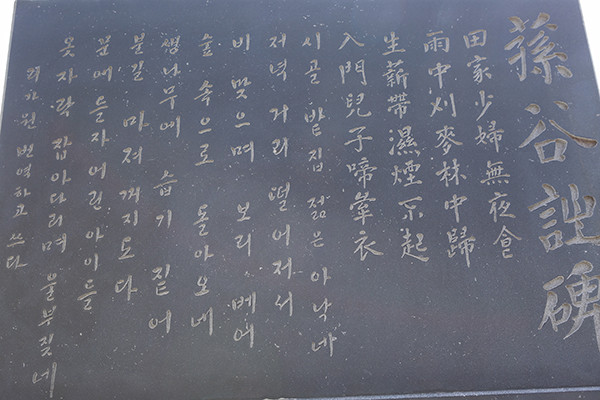 蓀谷詩碑
田家少婦無夜食
雨中刈麥林中歸
生薪帶濕煙不起
入門兒子啼牽衣
시골 밭집 젊은 아낙네
저녁 거리 떨어저서
비 맞으며 보리 베어
숲 속으로 돌아오네
생나무에 습기 짙어
불길 마져 꺼지도다
문에들자 어린 아이들
옷자락 잡아다리며 울부짖네
번역하고 쓰다